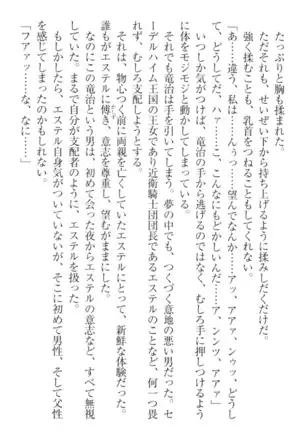 たっぷりと胸も揉まれた。
ただそれも、せいぜい下から持ち上げるように揉みしだくだけだ。
強く揉むことも、乳首をつねることもしてくれない。
「あ……違う、私は……んぅっ……望んでなんか……アッ、アアァ、ンゥッ、どうし
て、どうしてだ、ハァ……こ、こんなにもどかしいんだ……ア、ンンッ、アアァ」
いつしか気がつけば、竜治の手から逃げるのではなく、むしろ手に押しつけるよう
に体をモジモジと動かしてしまっている。
それでも竜治は手を引いてしまう。夢の中でも、つくづく意地の悪い男だった。セ
ーデルハイム王国の王女であり近衛騎士団団長であるエステルのことなど、何一つ畏
れず、むしろ支配しようとする。
それは、物心つく前に両親を亡くしていたエステルにとって、新鮮な体験だった。
誰もがエステルに傅き、意志を尊重し、望むがままにした。
なのにこの竜治という男は、初めて会った夜からエステルの意志など、すべて無視
する。まるで自分が支配者のように、エステルを扱った。
もしかしたら、エステル自身気がついていないが、そこに初めて男性、そして父性
を感じてしまったのかもしれない。
「フアァッ……な、なに……」